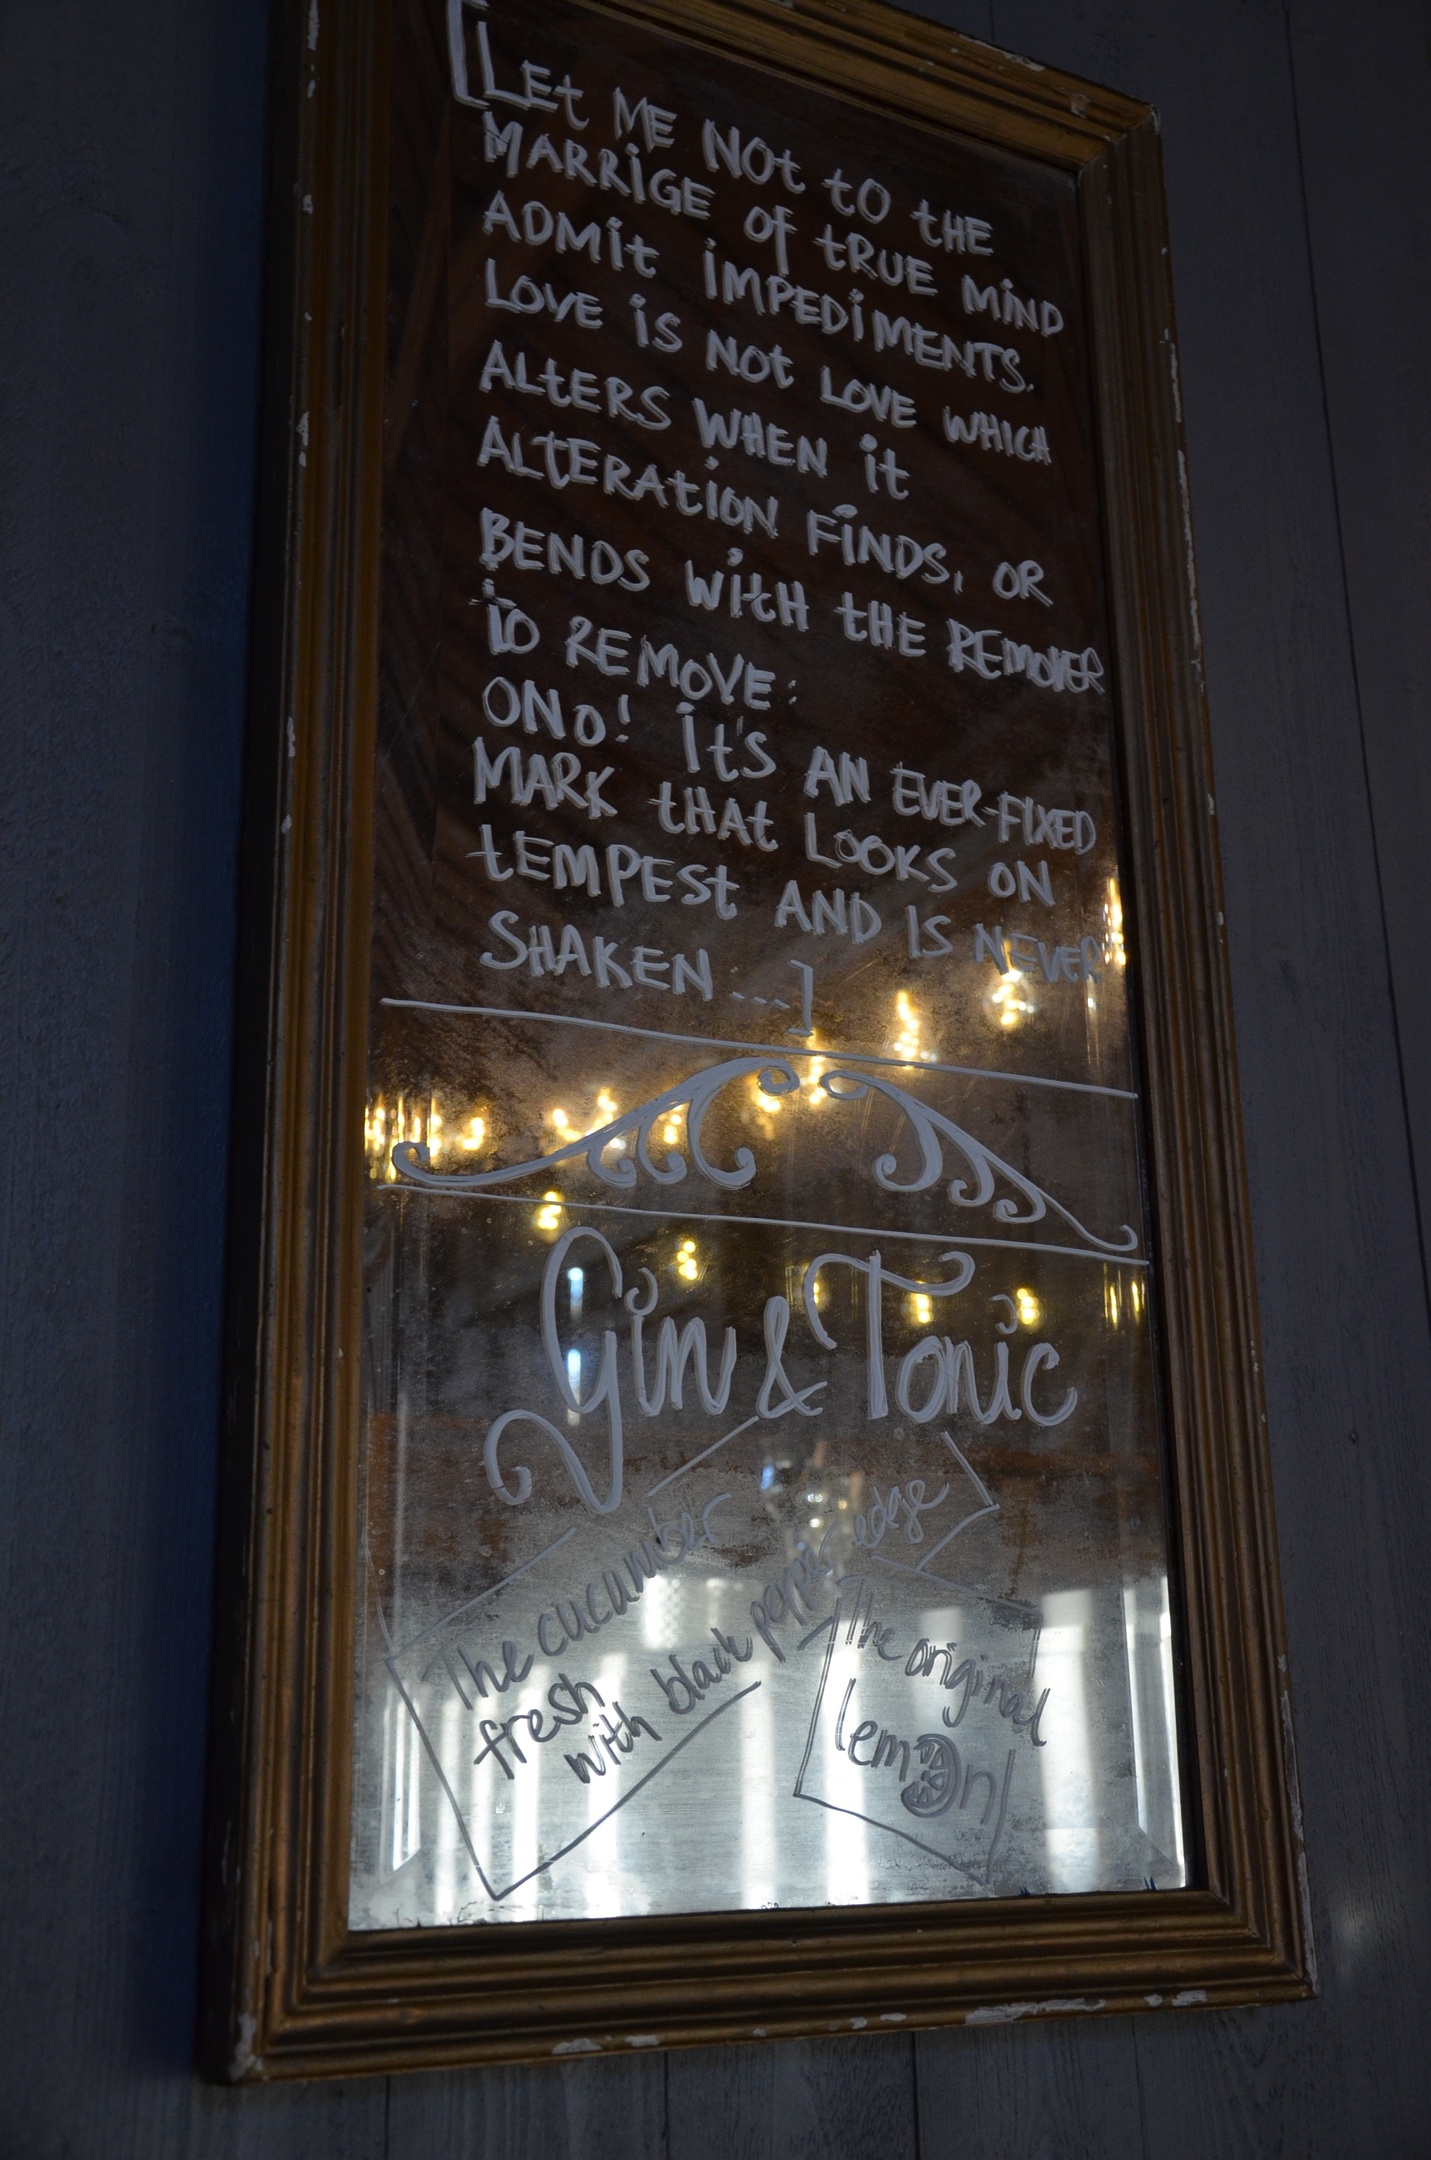 [LEt ME NOt tO tHE
MARRiGE Of tRUE MiND
ADMit iMPEDiMENTS.
LOVE iS NOt LOVE WHICH
ALtERS WHEN it
ALTERAtiON FiNDS, OR
BENDS WitH tHE REMOVER
tO REMOVE:
ONO! It'S AN EVER-FIXED
MARK tHAt LOOKS ON
tEMPESt AND IS NEVER
SHAKEN ...]
Gin & Tonic
The cucumber
fresh
with black pepper edge
The original
lemon